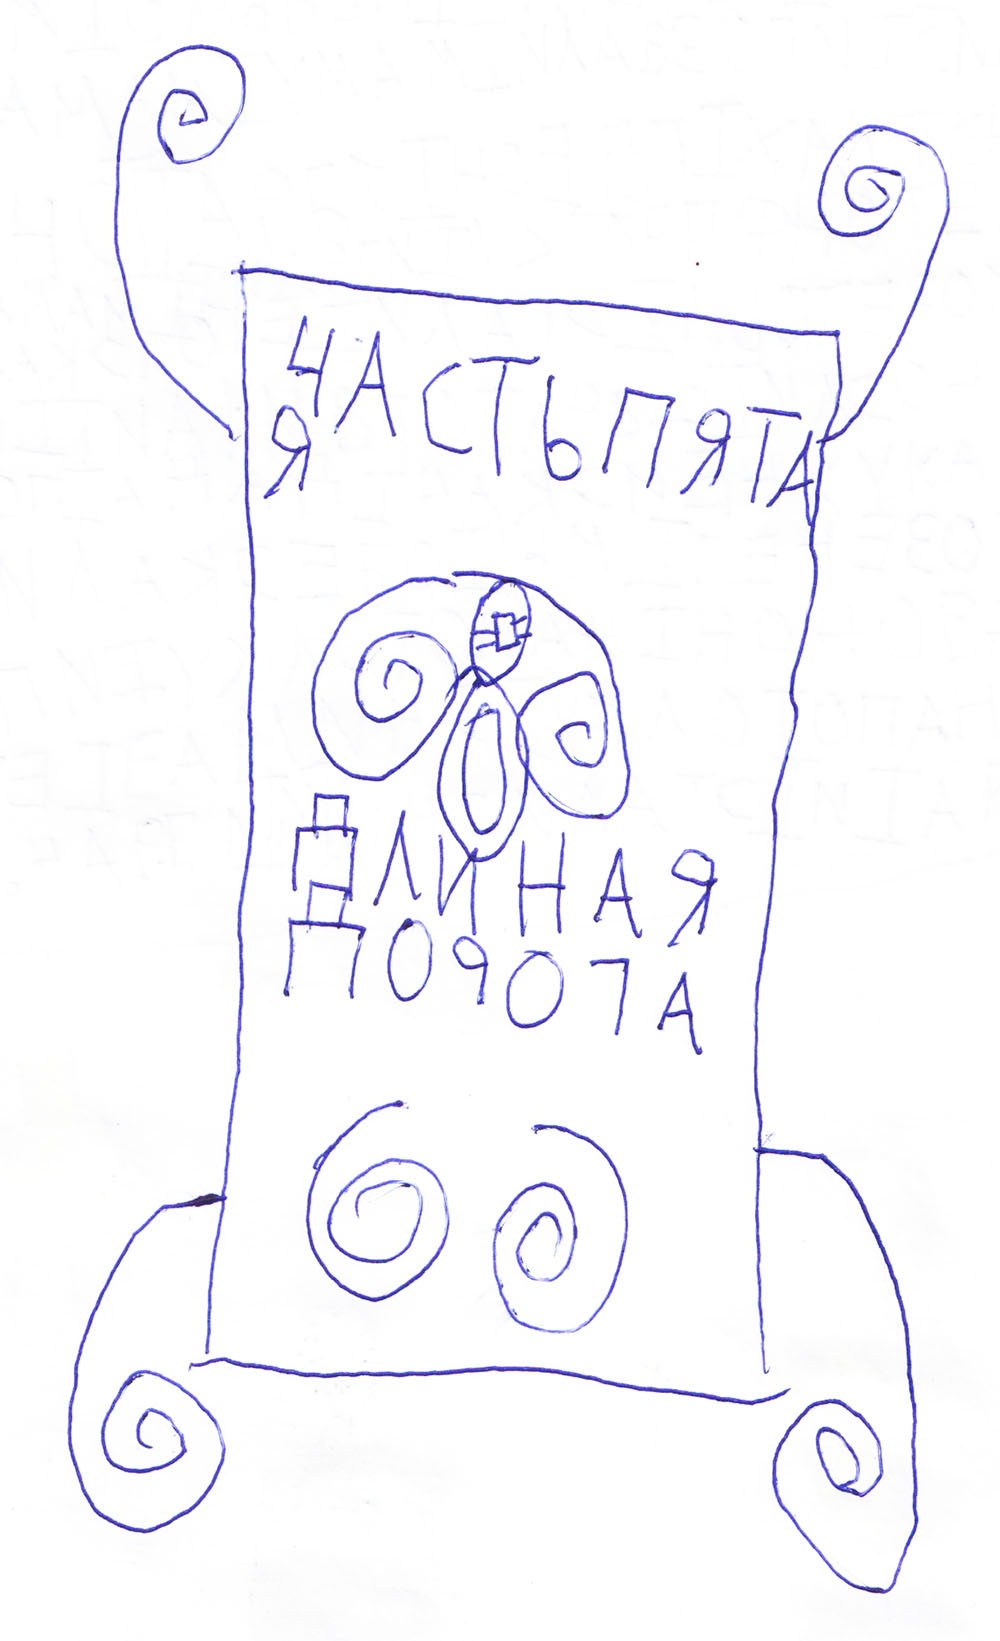 ЧАСТЬ ПЯТА
Я
ДЛИНАЯ
ДОРОГА